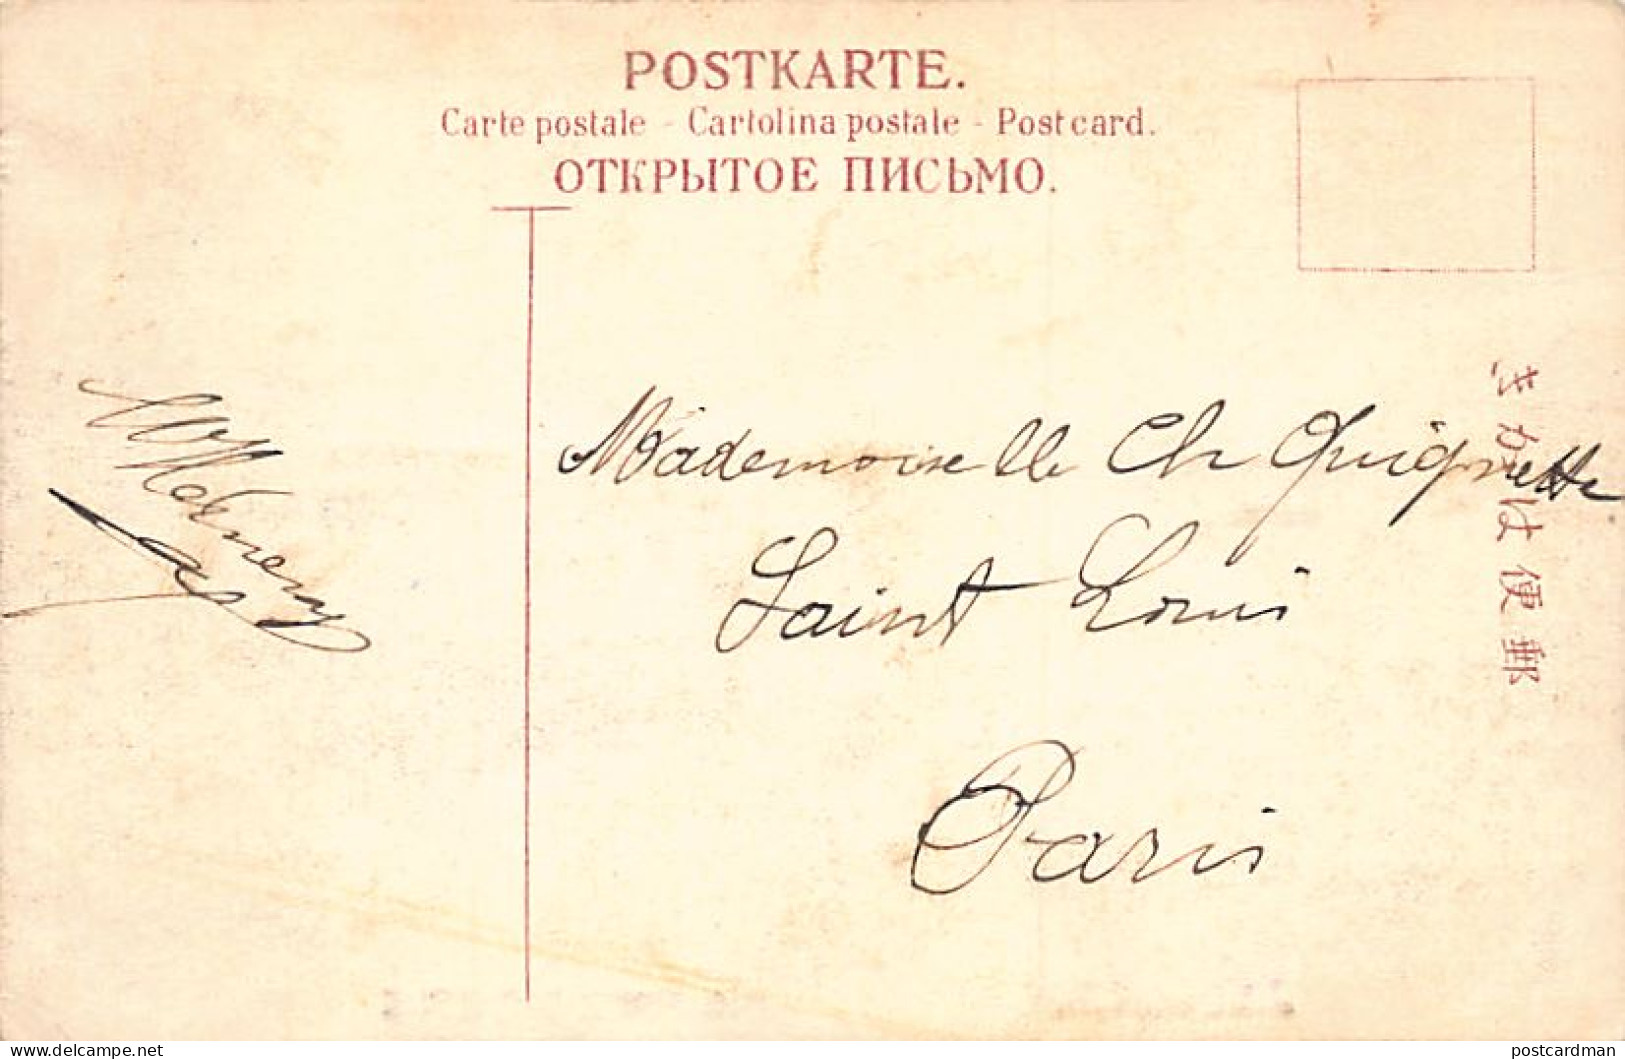 POSTKARTE.
Carte postale - Cartolina postale - Post card.
ОТКРЫТОЕ ПИСЬМО.
きがは便郵
Mademoiselle Ch Quignette
Saint Louis
Paris
www.delcampe.net
postcardman